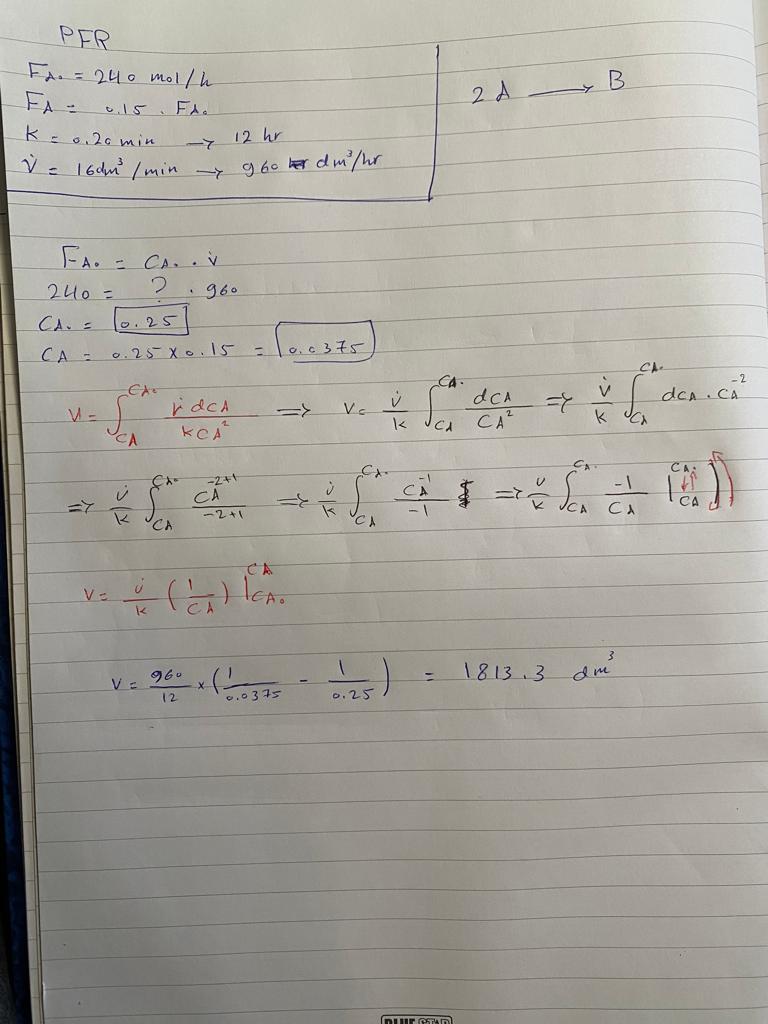 PFR
FA₀ = 240 mol/h
FA = 0.15 . FA₀
K = 0.20 min → 12 hr
V̇ = 16dm³/min → 960 dm³/hr
2A → B
FA₀ = CA₀ . v̇
240 = ? . 960
CA₀ = 0.25
CA = 0.25 x 0.15 = 0.0375
V = ∫_CA^CA₀ v̇ dCA / kCA² ⇒ V = v̇/k ∫_CA^CA₀ dCA / CA² ⇒ v̇/k ∫_CA^CA₀ dCA . CA⁻²
⇒ v̇/k ∫_CA^CA₀ CA⁻²⁺¹ / -2+1 ⇒ v̇/k ∫_CA^CA₀ CA⁻¹ / -1 ⇒ v/k ∫_CA^CA₀ -1/CA |_CA^CA₀ )
V = v̇/k (1/CA) |_CA₀^CA
V = 960/12 x (1/0.0375 - 1/0.25) = 1813.3 dm³